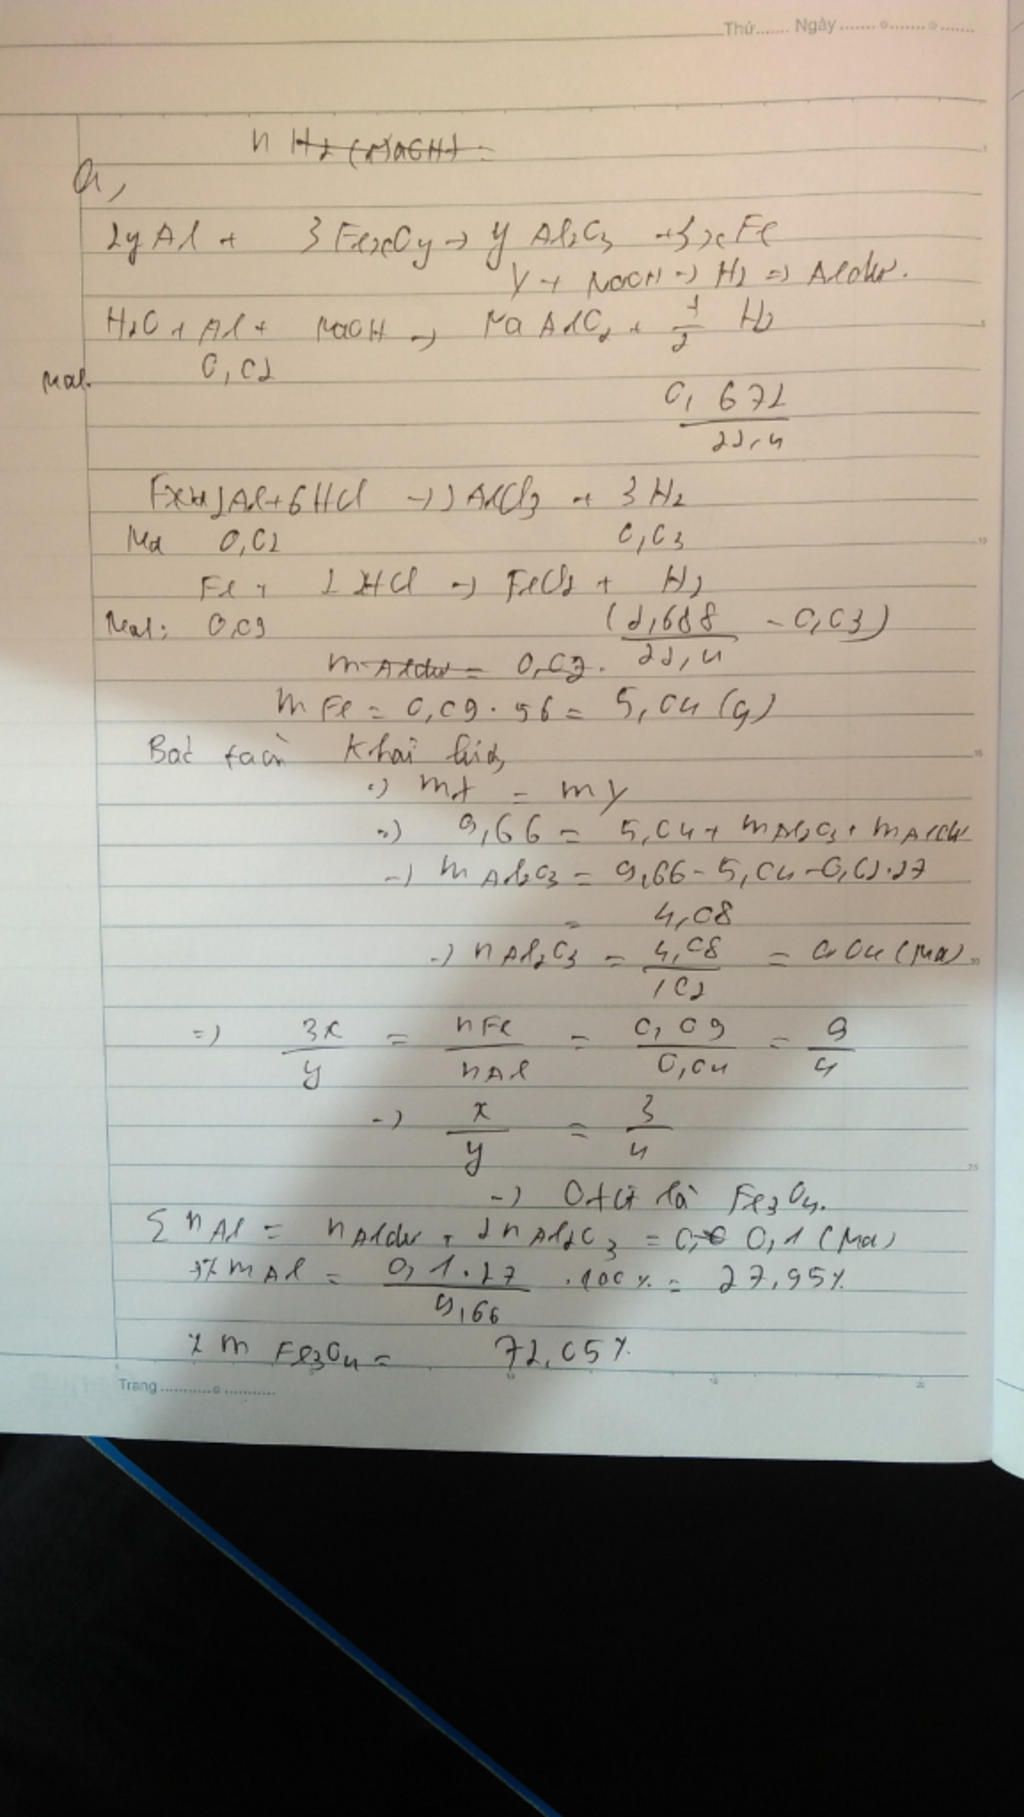 Thứ....... Ngày ....................
n H2 (NaOH) =
a,
2y Al + 3 FexOy → y Al2O3 + 3x Fe
Y + NaOH → H2 => Al dư.
H2O + Al + NaOH → NaAlO2 + 3/2 H2
Mol. 0,02
0,672/22,4
2Al + 6HCl → 2AlCl3 + 3H2
Mol 0,02 0,03
Fe + 2HCl → FeCl2 + H2
Mol: 0,09 (2,688/22,4 - 0,03)
m Al dư = 0,02.
m Fe = 0,09 . 56 = 5,04 (g)
Bảo toàn khối lượng
=) mX = mY
=) 9,66 = 5,04 + m Al2O3 + m Al dư
=) m Al2O3 = 9,66 - 5,04 - 0,02.27
= 4,08
=) n Al2O3 = 4,08/102 = 0,04 (Mol)
=) 3x/y = nFe/nAl = 0,09/0,04 = 9/4
=) x/y = 3/4
=) Oxit là Fe3O4.
Σ nAl = n Al dư + 2n Al2O3 = 0,1 (Mol)
% m Al = 0,1.27/9,66 .100% = 27,95%
% m Fe3O4 = 72,05%
Trang ....................